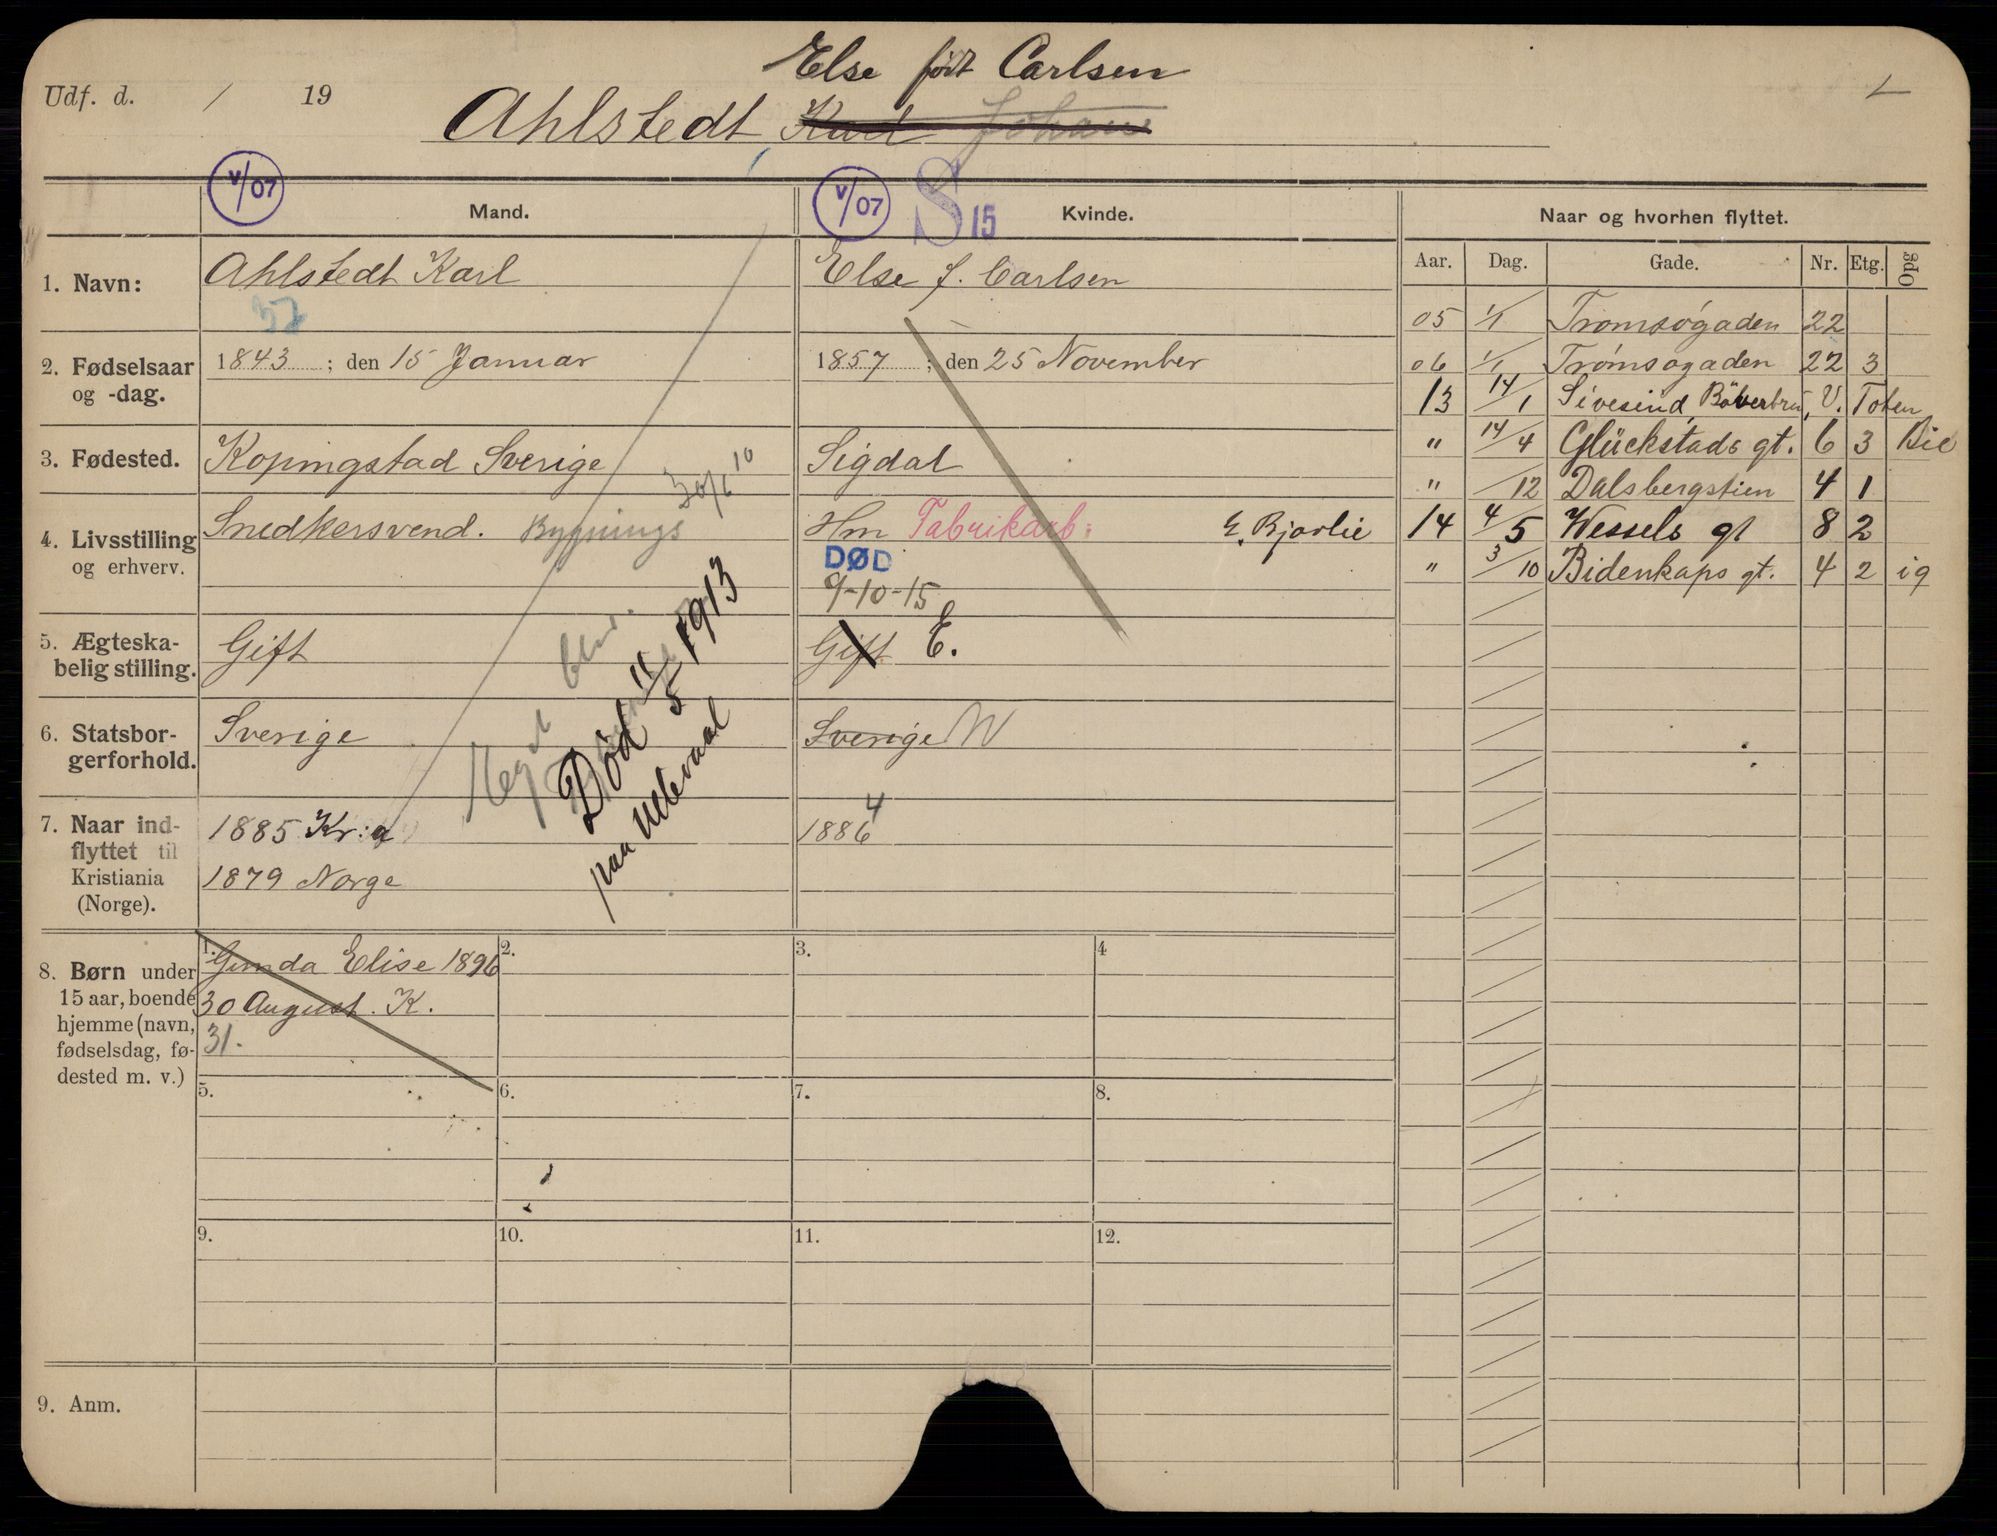 Else født Carlsen
Udf. d. / 19
Ahlstedt, Karl Johan
V/07
V/07 S 15
Mand.
Kvinde.
Naar og hvorhen flyttet.
Aar. Dag. Gade. Nr. Etg. Opg
1. Navn:
Ahlstedt Karl
Else f. Carlsen
2. Fødselsaar og -dag.
1843 ; den 15 Januar
1857 ; den 25 November
3. Fødested.
Kopingstad Sverige
30/6 10
Sigdal
4. Livsstilling og erhverv.
Snedkersvend. Bygnings
Hm Fabrikarb: E. Bjørlie
DØD
9-10-15
5. Ægteska-
belig stilling.
Gift
Gift E.
6. Statsbor-
gerforhold.
Sverige
Sverige N
7. Naar ind-
flyttet til
Kristiania
(Norge).
1885 Kr:a
1879 Norge
1886 4
Død 11/5 1913
paa Ullevaal
05 1/1 Tromsøgaden 22
06 1/1 Tromsøgaden 22 3
13 14/1 Sivesind, Böverbru, V. Toten
" 14/4 Glückstads gt. 6 3
" /12 Dalsbergstien 4 1
14 4/5 Wessels gt 8 2
" 3/10 Bidenkaps gt. 4 2 ig
8. Børn under
15 aar, boende
hjemme (navn,
fødselsdag, fø-
dested m. v.)
1. Gunda Elise 1896
30 August. K.
31.
2.
3.
4
5.
6.
7.
8.
9.
10.
11.
12.
9. Anm.